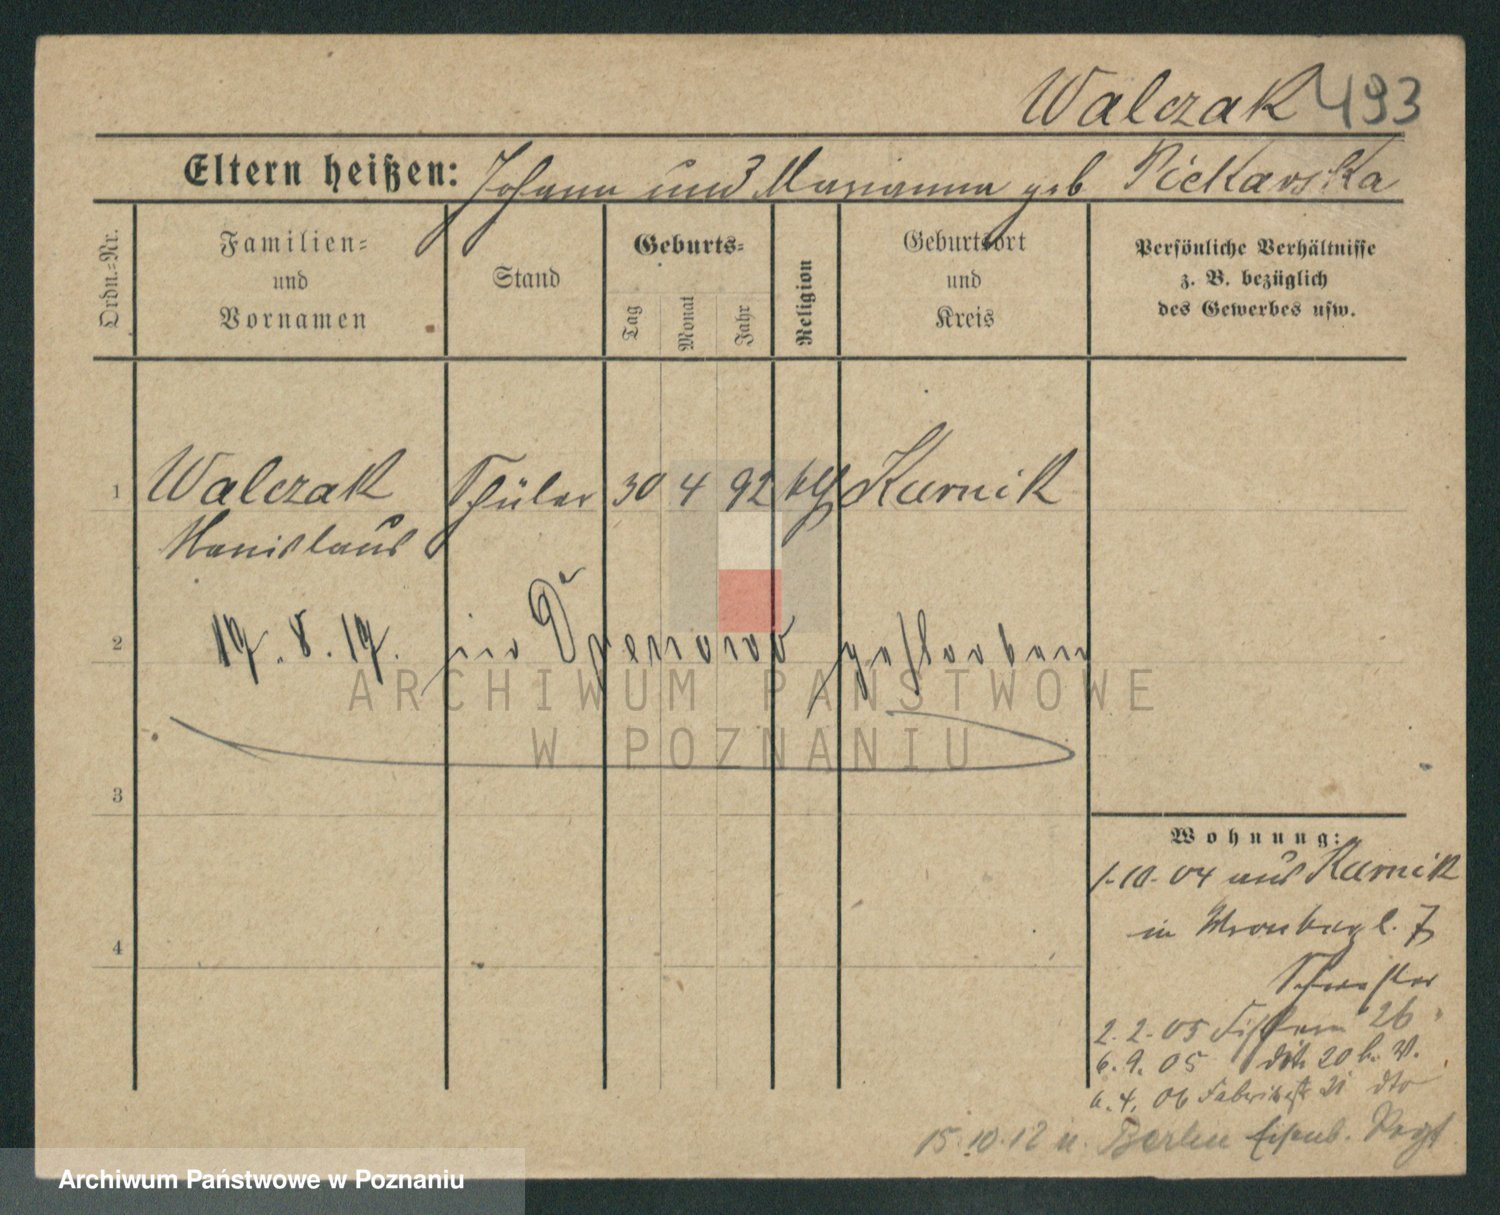 Walczak 493
Eltern heißen: Johann und Marianna geb Piekarska
Ordn.-Nr.
Familien-
und
Vornamen
Stand
Geburts-
Tag
Monat
Jahr
Religion
Geburtsort
und
Kreis
Persönliche Verhältnisse
z. B. bezüglich
des Gewerbes usw.
1 Walczak Schüler 30 4 92 kth Kurnik
Stanislaus
2 19. 8. 19. in gestorben
ARCHIWUM PAŃSTWOWE
W POZNANIU
3
Wohnung:
1-10-04 aus Kurnik
in 7
Schuster
4
2. 2. 05 26
6. 9. 05 dto 20 b. W.
6. 4. 06 Fabrikstr 31 dto
15.10.12 n. Berlin Eisenb. Regt
Archiwum Państwowe w Poznaniu